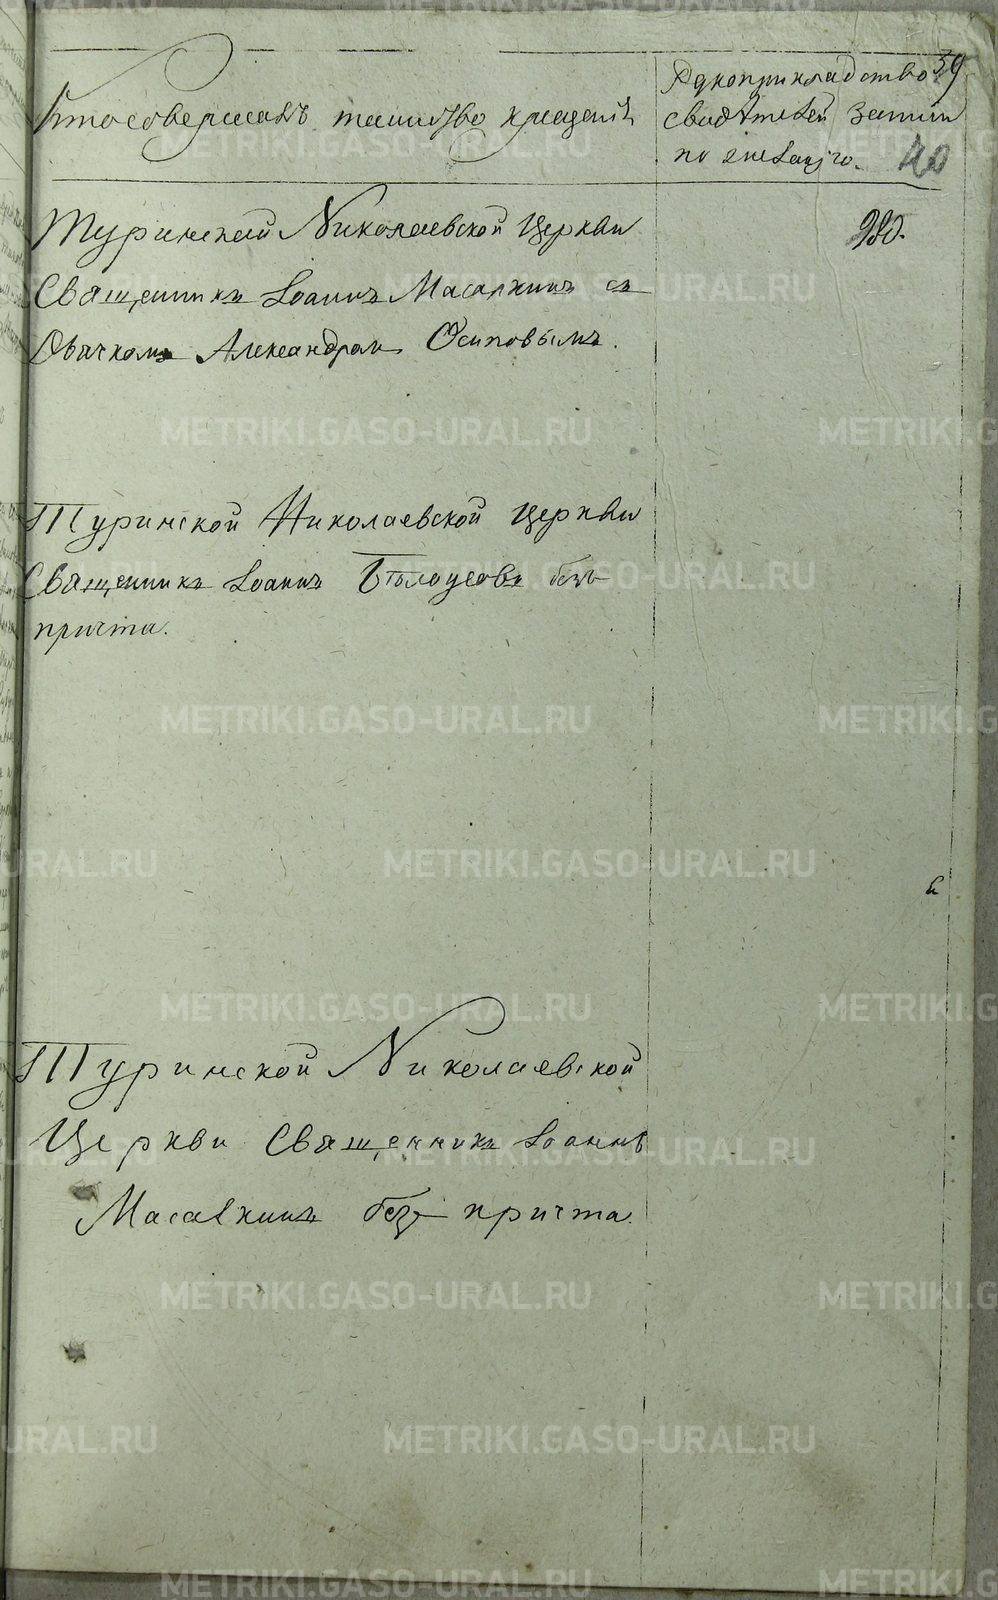 39
Кто совершалъ таинство крещенія
Рукоприкладство
свидѣтелей записи
по желанію.
40
Туринской Николаевской Церкви
Священникъ Іоаннъ Масалкинъ съ
Дьячкомъ Александромъ Осиповымъ.
Туринской Николаевской Церкви
Священникъ Іоаннъ Бѣлоусовъ безъ
причта.
Туринской Николаевской
Церкви Священникъ Іоаннъ
Масалкинъ безъ причта.
METRIKI.GASO-URAL.RU